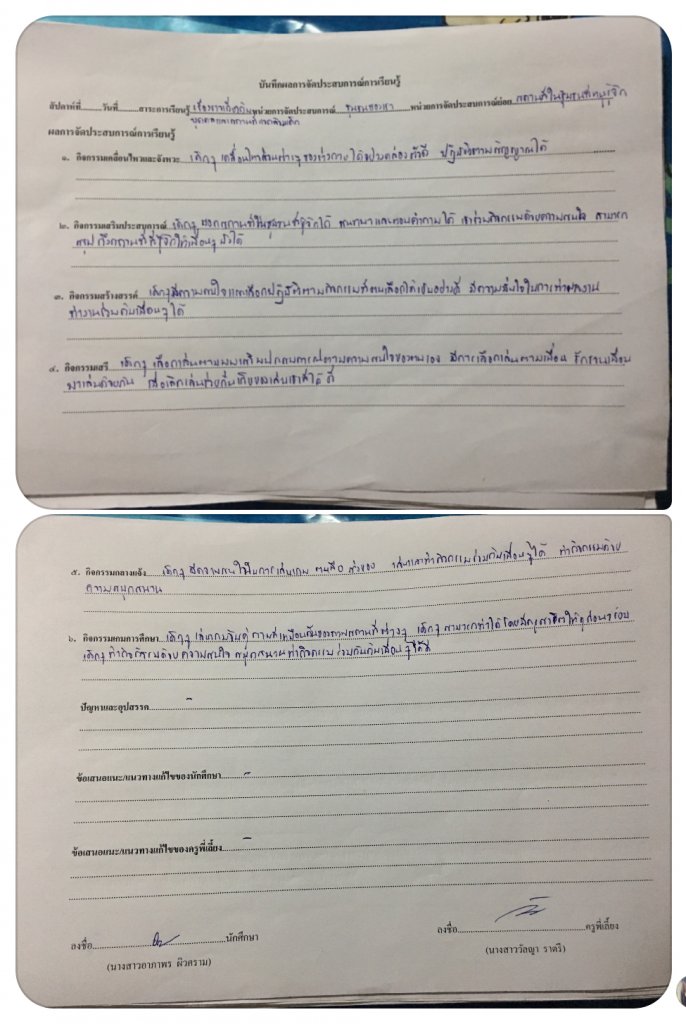 บันทึกผลการจัดประสบการณ์การเรียนรู้
สัปดาห์ที่........วันที่........สาระการเรียนรู้ เรื่องราวเกี่ยวกับ หน่วยการจัดประสบการณ์ ชุมชนของเรา หน่วยการจัดประสบการณ์ย่อย สถานที่ในชุมชนที่หนูรู้จัก
บุคคลและสถานที่แวดล้อมเด็ก
ผลการจัดประสบการณ์การเรียนรู้
๑. กิจกรรมเคลื่อนไหวและจังหวะ เด็กๆ เคลื่อนไหวส่วนต่างๆ ของร่างกายได้อย่างคล่องตัวดี ปฏิบัติตามสัญญาณได้
๒. กิจกรรมเสริมประสบการณ์ เด็กๆ บอกสถานที่ในชุมชนที่รู้จักได้ สนทนาและตอบคำถามได้ เข้าร่วมกิจกรรมด้วยความสนใจ สามารถ
สรุป ถึงสถานที่ที่รู้จักให้เพื่อนๆ ฟังได้
๓. กิจกรรมสร้างสรรค์ เด็กๆ มีความสนใจและเลือกปฏิบัติตามกิจกรรมที่ตนเลือกได้เป็นอย่างดี มีความตั้งใจในการทำผลงาน
ทำงานร่วมกับเพื่อนๆ ได้
๔. กิจกรรมเสรี เด็กๆ เลือกเล่นตามมุมเสริมประสบการณ์ตามความสนใจของตนเอง มีการเลือกเล่นตามเพื่อน ชักชวนเพื่อน
มาเล่นด้วยกัน เมื่อเลิกเล่นช่วยกันเก็บของเล่นเข้าที่ได้ ดี
๕. กิจกรรมกลางแจ้ง เด็กๆ มีความสนใจในการเล่นเกม ส่งของ เล่นและทำกิจกรรมร่วมกับเพื่อนๆ ได้ ทำกิจกรรมด้วย
ความสนุกสนาน
๖. กิจกรรมเกมการศึกษา เด็กๆ เล่นเกมจับคู่ ภาพที่เหมือนกันของภาพสถานที่ต่างๆ เด็กๆ สามารถทำได้โดยมีครูสาธิตให้ดูก่อน
เด็กๆ ทำกิจกรรมด้วยความสนใจ สนุกสนาน ทำกิจกรรม ร่วมกันกับเพื่อนๆ ได้ดี
ปัญหาและอุปสรรค -
ข้อเสนอแนะ/แนวทางแก้ไขของนักศึกษา -
ข้อเสนอแนะ/แนวทางแก้ไขของครูพี่เลี้ยง -
ลงชื่อ........นักศึกษา ลงชื่อ........ครูพี่เลี้ยง
(นางสาวอาภาพร ผิวคราม) (นางสาววัลญา ราตรี)